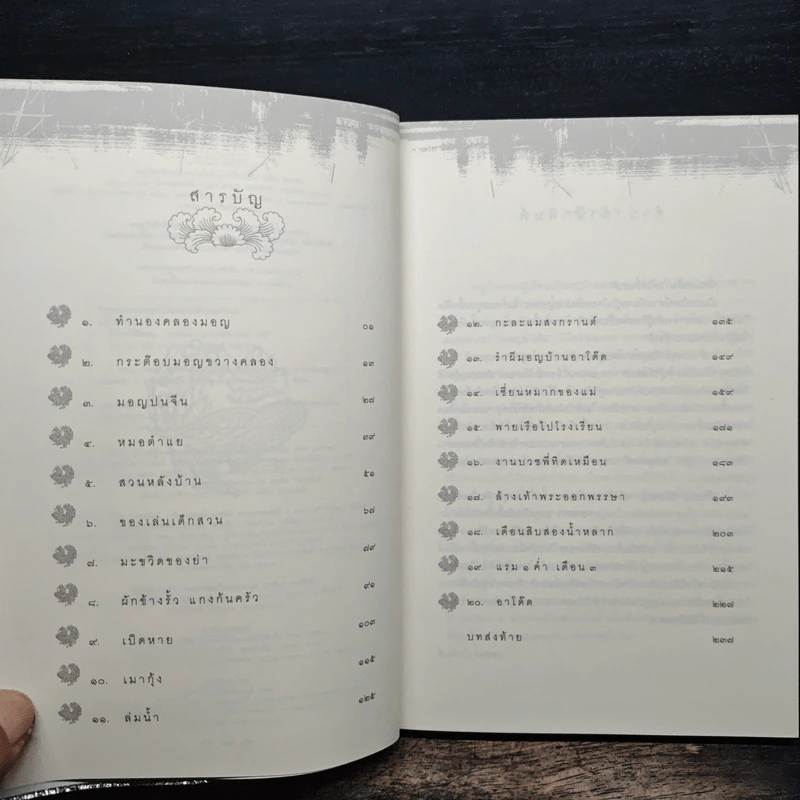 สารบัญ
๑. ทำนองคลองมอญ ๐๑
๒. กระต๊อบมอญขวางคลอง ๑๓
๓. มอญปนจีน ๒๗
๔. หมอตำแย ๓๙
๕. สวนหลังบ้าน ๕๑
๖. ของเล่นเด็กสวน ๖๗
๗. มะขวิดของย่า ๗๙
๘. ผักข้างรั้ว แกงก้นครัว ๙๑
๙. เป็ดหาย ๑๐๓
๑๐. เมากุ้ง ๑๑๕
๑๑. ล่มน้ำ ๑๒๕
๑๒. กะละแมสงกรานต์ ๑๓๕
๑๓. รำผีมอญบ้านอาโด๊ด ๑๔๙
๑๔. เชี่ยนหมากของแม่ ๑๕๙
๑๕. พายเรือไปโรงเรียน ๑๗๑
๑๖. งานบวชพี่ทิดเหมือน ๑๘๓
๑๗. ล้างเท้าพระออกพรรษา ๑๙๓
๑๘. เดือนสิบสองน้ำหลาก ๒๐๓
๑๙. แรม ๑ ค่ำ เดือน ๓ ๒๑๕
๒๐. อาโด๊ด ๒๒๗
บทส่งท้าย ๒๓๗